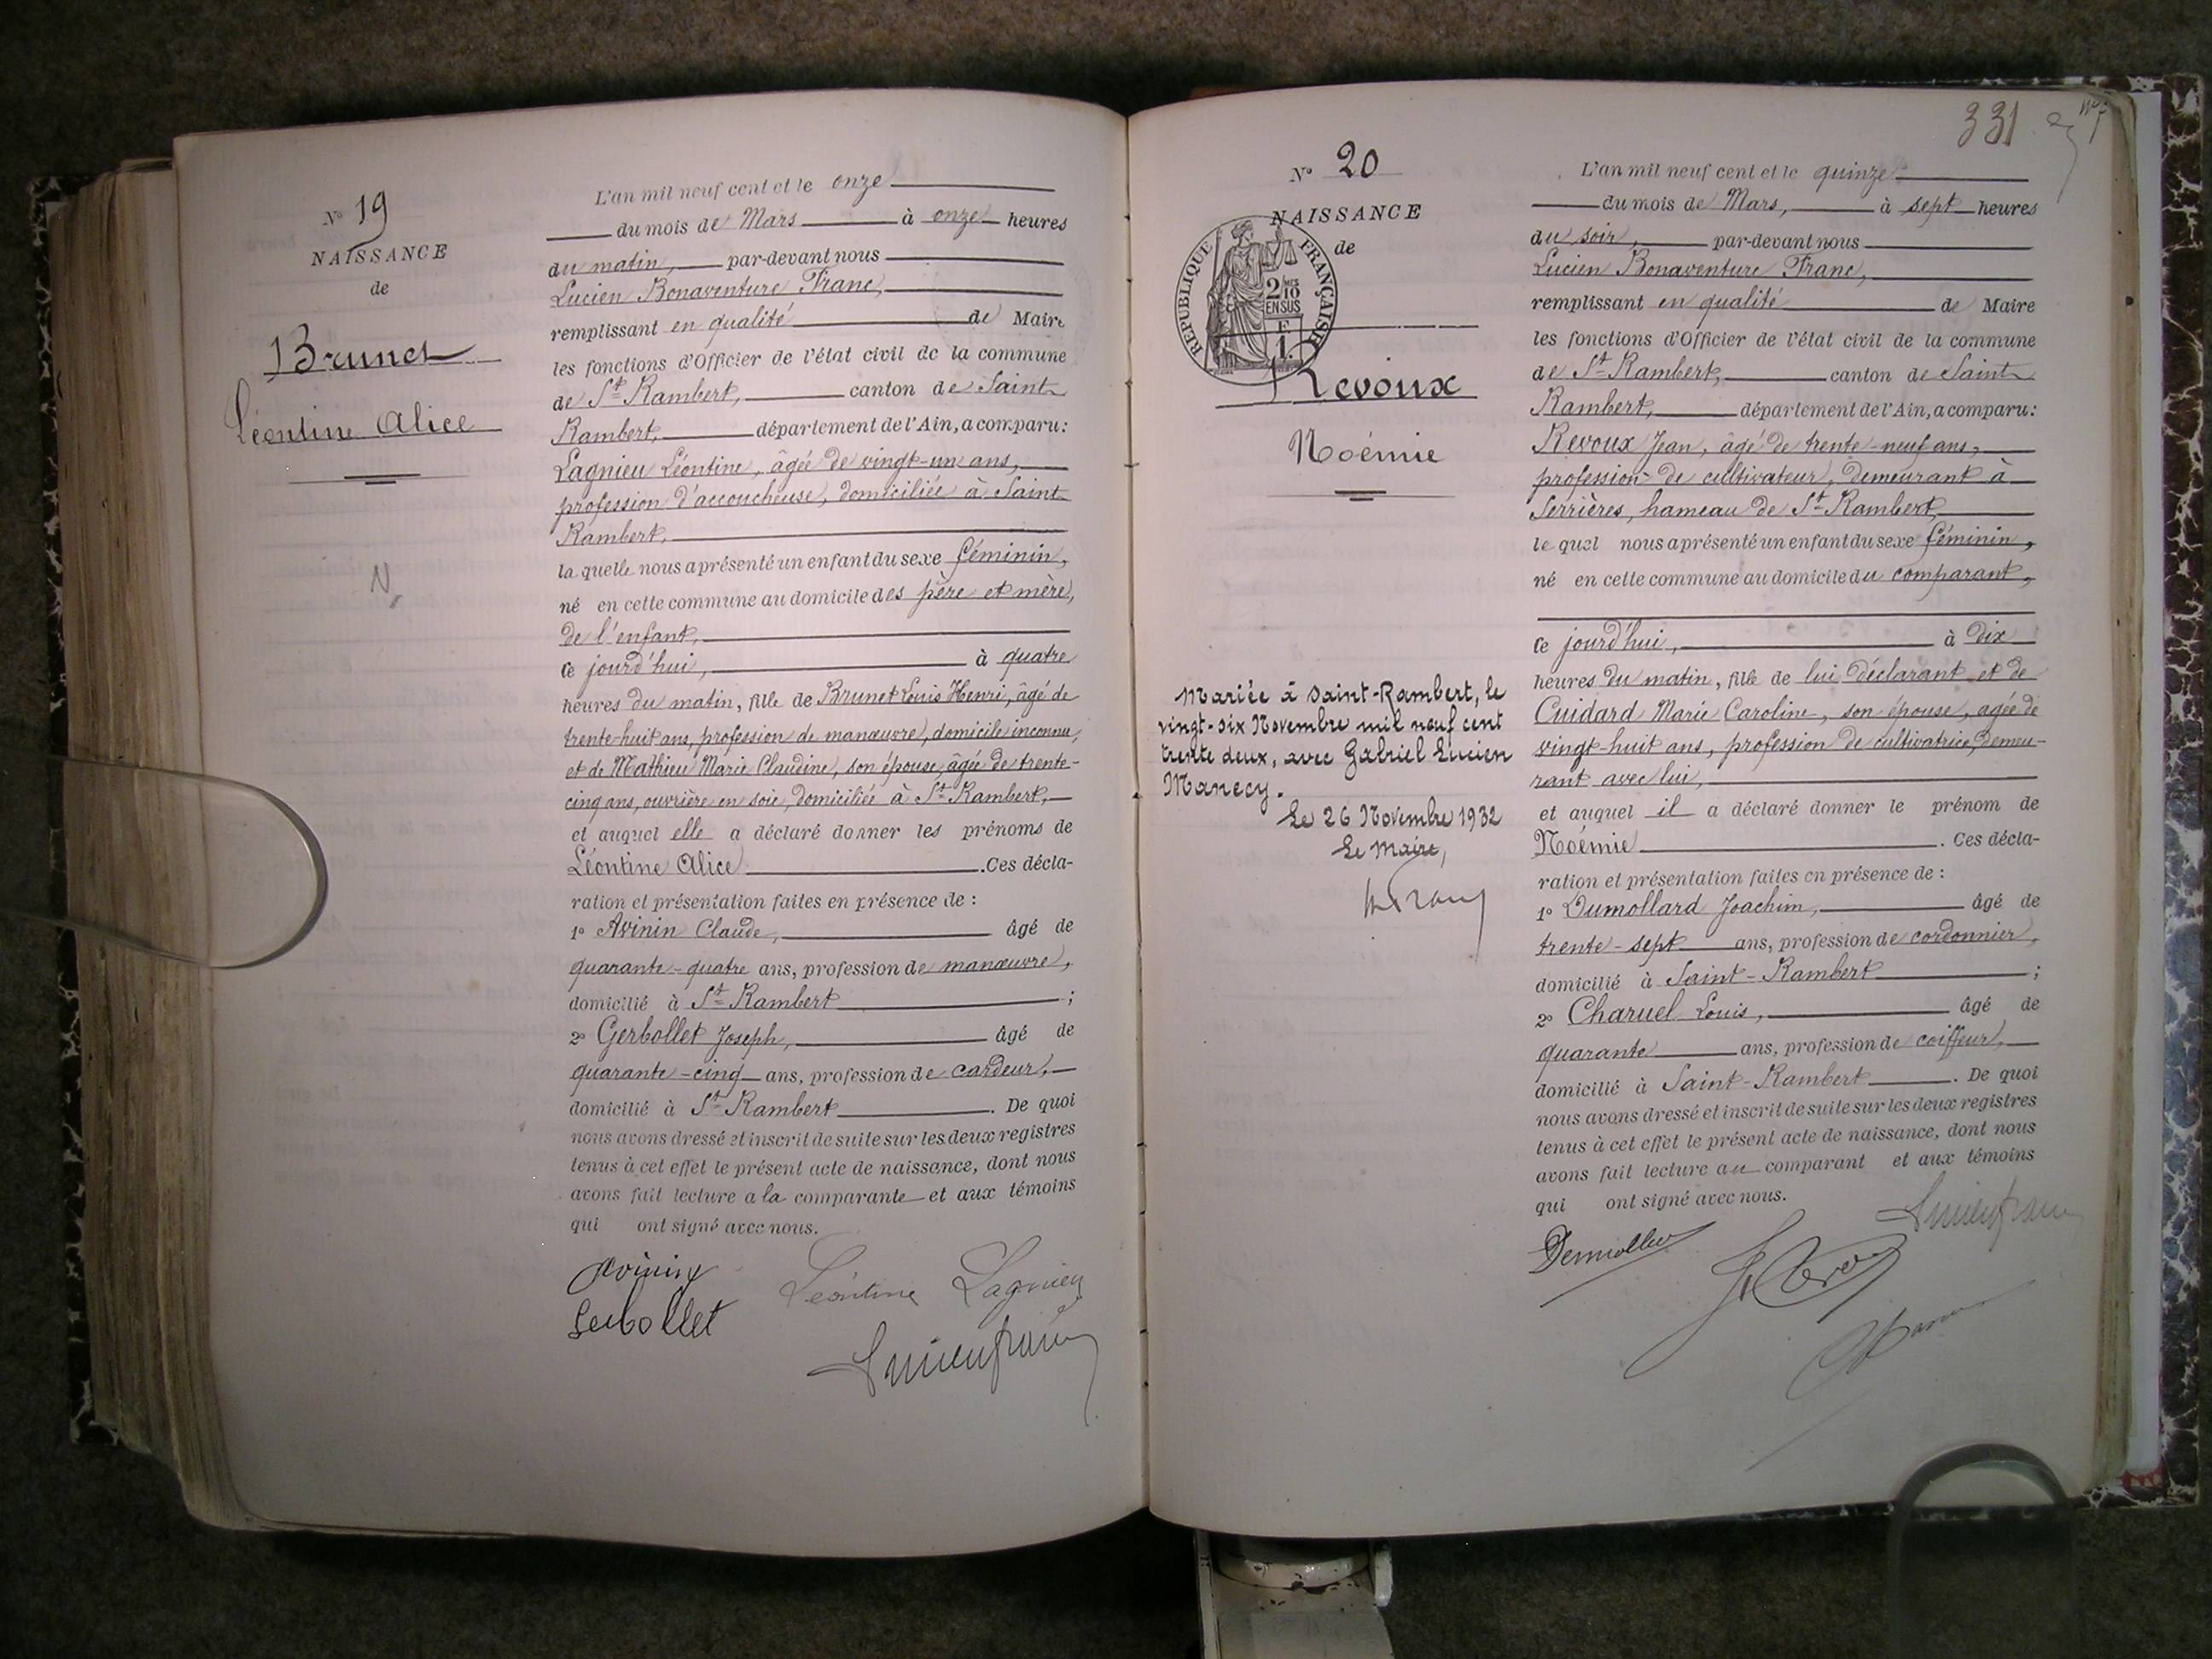 N° 19
NAISSANCE
de
Brunet
Léontine Alice
N.
L'an mil neuf cent et le onze
du mois de Mars à onze heures
du matin, par-devant nous
Lucien Bonaventure Franc,
remplissant en qualité de Maire
les fonctions d'Officier de l'état civil de la commune
de St Rambert, canton de Saint
Rambert, département de l'Ain, a comparu:
Lagnieu Léontine, âgée de vingt-un ans,
profession d'accoucheuse, domiciliée à Saint
Rambert,
la quelle nous a présenté un enfant du sexe féminin,
né en cette commune au domicile des père et mère,
de l'enfant,
ce jourd'hui, à quatre
heures du matin, fille de Brunet Louis Henri, âgé de
trente-huit ans, profession de manœuvre, domicile inconnu,
et de Mathieu Marie Claudine, son épouse, âgée de trente-
cinq ans, ouvrière en soie, domiciliée à St Rambert,
et auquel elle a déclaré donner les prénoms de
Léontine Alice. Ces décla-
ration et présentation faites en présence de :
1° Avinin Claude, âgé de
quarante-quatre ans, profession de manœuvre,
domicilié à St Rambert ;
2° Gerbollet Joseph, âgé de
quarante-cinq ans, profession de cardeur,
domicilié à St Rambert. De quoi
nous avons dressé et inscrit de suite sur les deux registres
tenus à cet effet le présent acte de naissance, dont nous
avons fait lecture à la comparante et aux témoins
qui ont signé avec nous.
Avinin Léontine Lagnieu
Gerbollet
Lucien Franc
331
N° 20
NAISSANCE
de
REPUBLIQUE FRANÇAISE
2/10
EN SUS
F.
1.
Revoux
Noémie
Mariée à Saint-Rambert, le
vingt-six Novembre mil neuf cent
trente deux, avec Gabriel Lucien
Manecy.
Le 26 Novembre 1932
Le Maire,
L'an mil neuf cent et le quinze
du mois de Mars, à sept heures
du soir, par-devant nous
Lucien Bonaventure Franc,
remplissant en qualité de Maire
les fonctions d'Officier de l'état civil de la commune
de St Rambert, canton de Saint
Rambert, département de l'Ain, a comparu:
Revoux Jean, âgé de trente-neuf ans,
profession de cultivateur, demeurant à
Serrières, hameau de St Rambert,
le quel nous a présenté un enfant du sexe féminin,
né en cette commune au domicile du comparant,
ce jourd'hui, à dix
heures du matin, fille de lui déclarant et de
Cuidard Marie Caroline, son épouse, agée de
vingt-huit ans, profession de cultivatrice, demeu-
rant avec lui,
et auquel il a déclaré donner le prénom de
Noémie. Ces décla-
ration et présentation faites en présence de :
1° Dumollard Joachim, âgé de
trente-sept ans, profession de cordonnier,
domicilié à Saint-Rambert ;
2° Charuel Louis, âgé de
quarante ans, profession de coiffeur,
domicilié à Saint-Rambert. De quoi
nous avons dressé et inscrit de suite sur les deux registres
tenus à cet effet le présent acte de naissance, dont nous
avons fait lecture au comparant et aux témoins
qui ont signé avec nous.
Lucien Franc